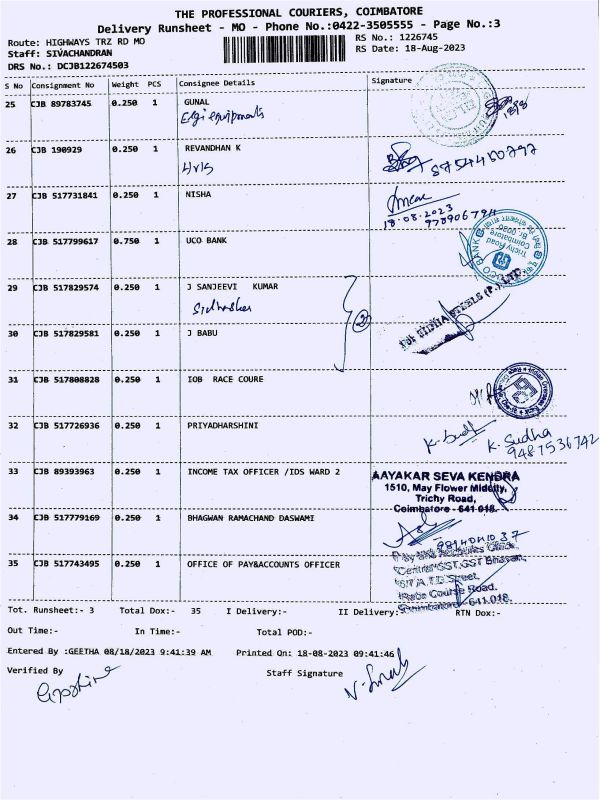 THE PROFESSIONAL COURIERS, COIMBATORE
Delivery Runsheet - MO - Phone No.:0422-3505555 - Page No.:3
Route: HIGHWAYS TRZ RD MO
RS No.: 1226745
Staff: SIVACHANDRAN
RS Date: 18-Aug-2023
DRS No.: DCJB122674503
S No Consignment No Weight PCS Consignee Details Signature
25 CJB 89783745 0.250 1 GUNAL
26 CJB 190929 0.250 1 REVANDHAN K
8754480797
27 CJB 517731841 0.250 1 NISHA
18.08.2023
28 CJB 517799617 0.750 1 UCO BANK
UCO BANK
Trichy Road
Coimbatore
29 CJB 517829574 0.250 1 J SANJEEVI KUMAR
2
30 CJB 517829581 0.250 1 J BABU
31 CJB 517808828 0.250 1 IOB RACE COURE
32 CJB 517726936 0.250 1 PRIYADHARSHINI
K. Sudha
9487536742
33 CJB 89393963 0.250 1 INCOME TAX OFFICER /IDS WARD 2
AAYAKAR SEVA KENDRA
1510, May Flower Midcity,
Trichy Road,
Coimbatore - 641 018.
34 CJB 517779169 0.250 1 BHAGWAN RAMACHAND DASWAMI
35 CJB 517743495 0.250 1 OFFICE OF PAY&ACCOUNTS OFFICER
Race Course Road,
Coimbatore - 641 018.
Tot. Runsheet:- 3 Total Dox:- 35 I Delivery:- II Delivery:- RTN Dox:-
Out Time:- In Time:- Total POD:-
Entered By :GEETHA 08/18/2023 9:41:39 AM Printed On: 18-08-2023 09:41:46
Verified By Staff Signature